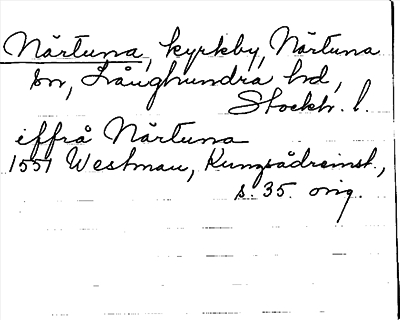 Närtuna, kyrkby, Närtuna
sn, Långhundra hd,
Stockh. l.
iffrå Närtuna
1551 Westman, Kungsådreinst.,
s. 35. orig.